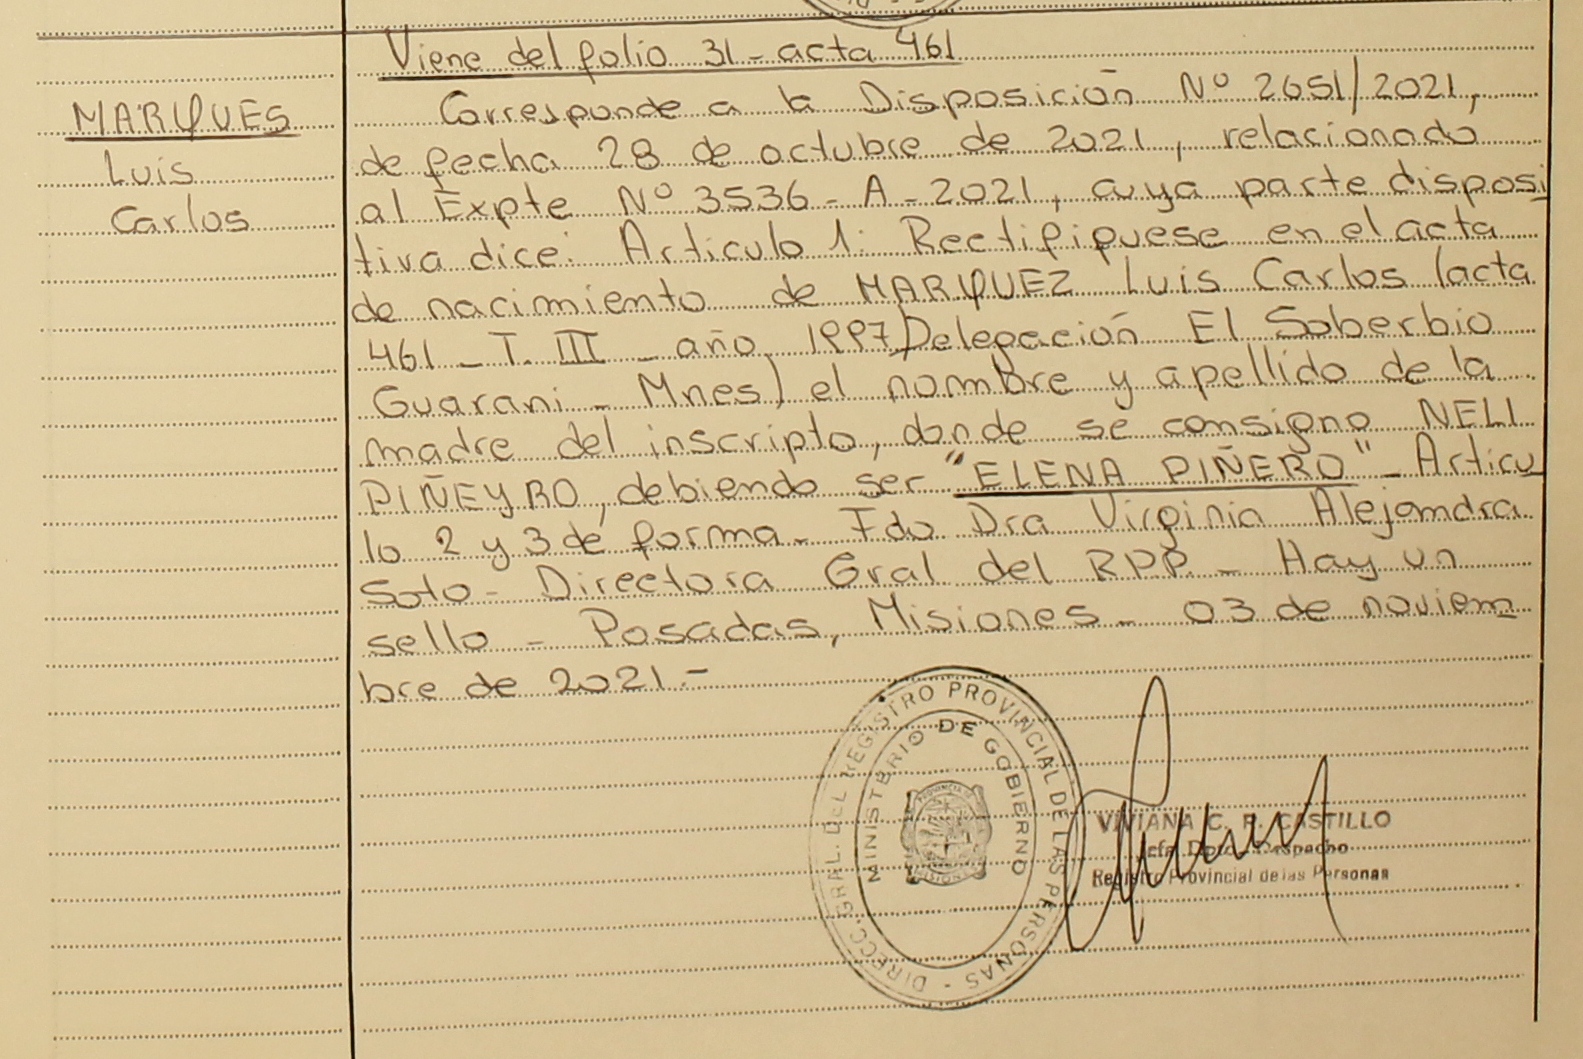 Viene del folio 31 - acta 461
MARQUES
Luis
Carlos
Corresponde a la Disposición Nº 2651/2021,
de fecha 28 de octubre de 2021, relacionado
al Expte Nº 3536 - A - 2021, cuya parte disposi
tiva dice: Articulo 1: Rectifiquese en el acta
de nacimiento de MARQUEZ Luis Carlos (acta
461 - T. III - año 1997) Delegación El Soberbio
Guarani - Mnes) el nombre y apellido de la
madre del inscripto, donde se consigno NELI
PIÑEYRO, debiendo ser "ELENA PIÑERO" - Articu
lo 2 y 3 de forma - Fdo Dra Virginia Alejandra
Soto - Directora Gral del RPP. - Hay un
sello - Posadas, Misiones - 03 de noviem
bre de 2021.-
DIRECC. GRAL. DEL REGISTRO PROVINCIAL DE LAS PERSONAS -
MINISTERIO DE GOBIERNO
PROVINCIA DE
MISIONES
VIVIANA C. R. CASTILLO
Jefa Dpto. Despacho
Registro Provincial de las Personas